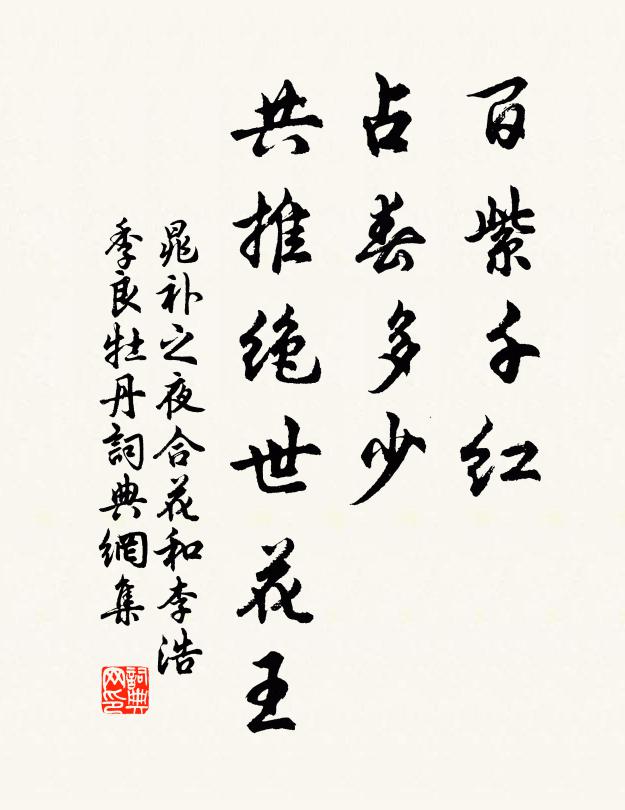 百紫千红
占春多少
共推绝世花王
晁补之夜合花和李浩
季良牡丹詞典網集
詞典网印